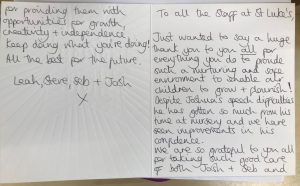 To all the Staff at St Luke's,
Just wanted to say a huge
thank you to you all for
everything you do to provide
such a nurturing and safe
environment to enable our
children to grow + flourish!
Despite Joshua's speech difficulties
he has gotten so much from his
time at nursery and we have
seen improvements in his
confidence.
We are so grateful to you all
for taking such good care
of both Josh + Seb and
for providing them with
opportunities for growth,
creativity + independence.
Keep doing what you're doing!
All the best for the future.
Leah, Steve, Seb + Josh
X